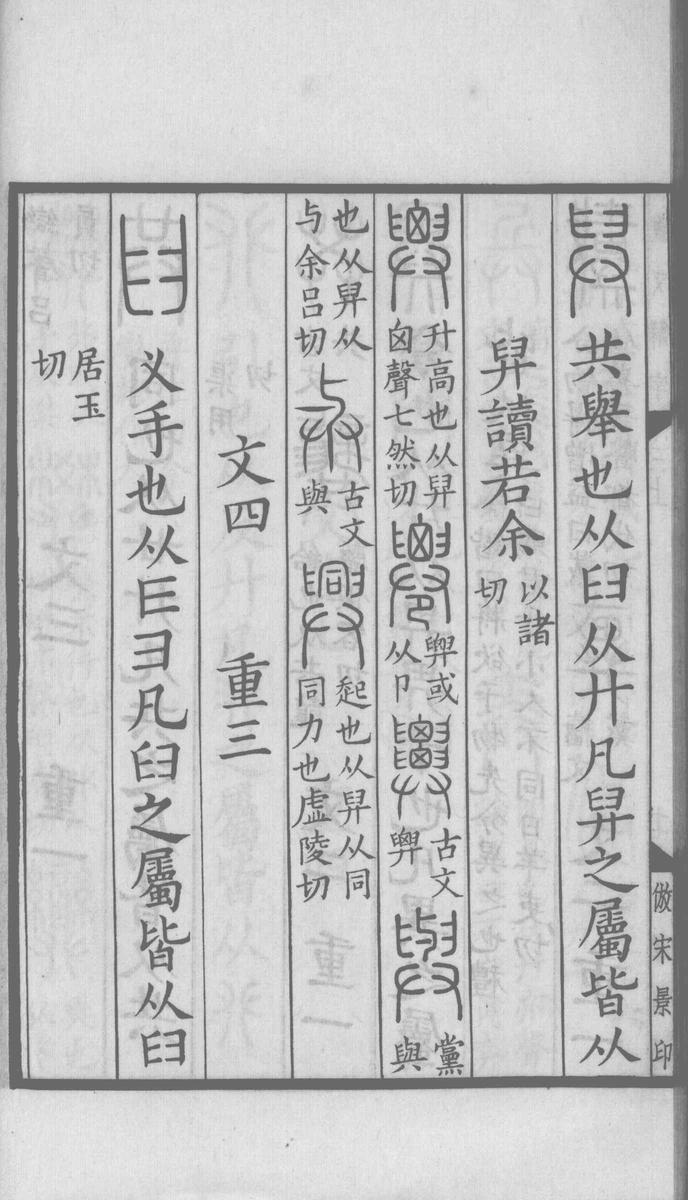 舁共舉也从𦥑从廾凡舁之屬皆从
舁讀若余以諸切
𦥷升高也从舁囟聲七然切𦥷或从卩古文𦥷與黨與
也从舁从与余呂切古文與興起也从舁从同同力也虛陵切
文四 重三
𦥑叉手也从𦥔彐凡𦥑之屬皆从𦥑
居玉切
倣宋景印